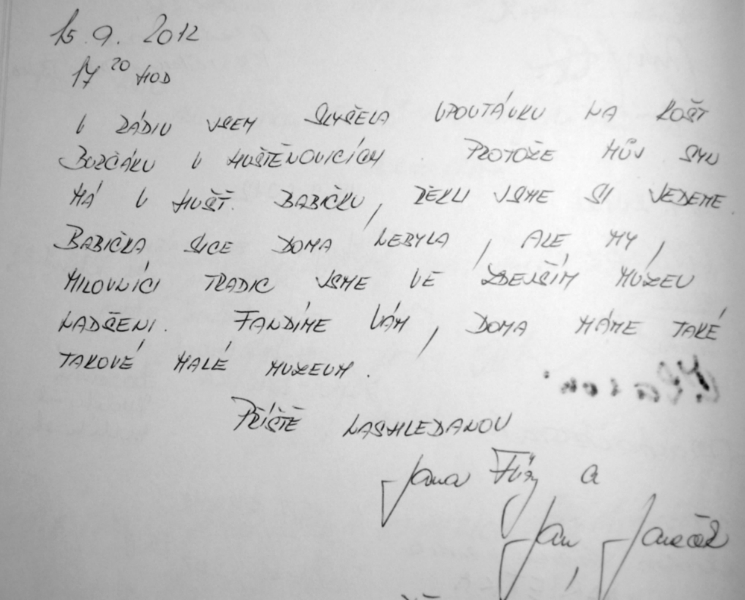 15. 9. 2012
17 20 HOD
V RÁDIU JSEM SLYŠELA UPOUTÁVKU NA KOŠT
BURČÁKU V HUŠTĚNOVICÍCH. PROTOŽE MŮJ SYN
MÁ V HUŠŤ. BABIČKU, ŘEKLI JSME SI JEDEME.
BABIČKA SICE DOMA NEBYLA, ALE MY,
MILOVNÍCI TRADIC JSME VE ZDEJŠÍM MUZEU
NADŠENI. FANDÍME VÁM, DOMA MÁME TAKÉ
TAKOVÉ MALÉ MUZEUM.
PŘÍŠTĚ NASHLEDANOU
Jana a
Jan Janeček